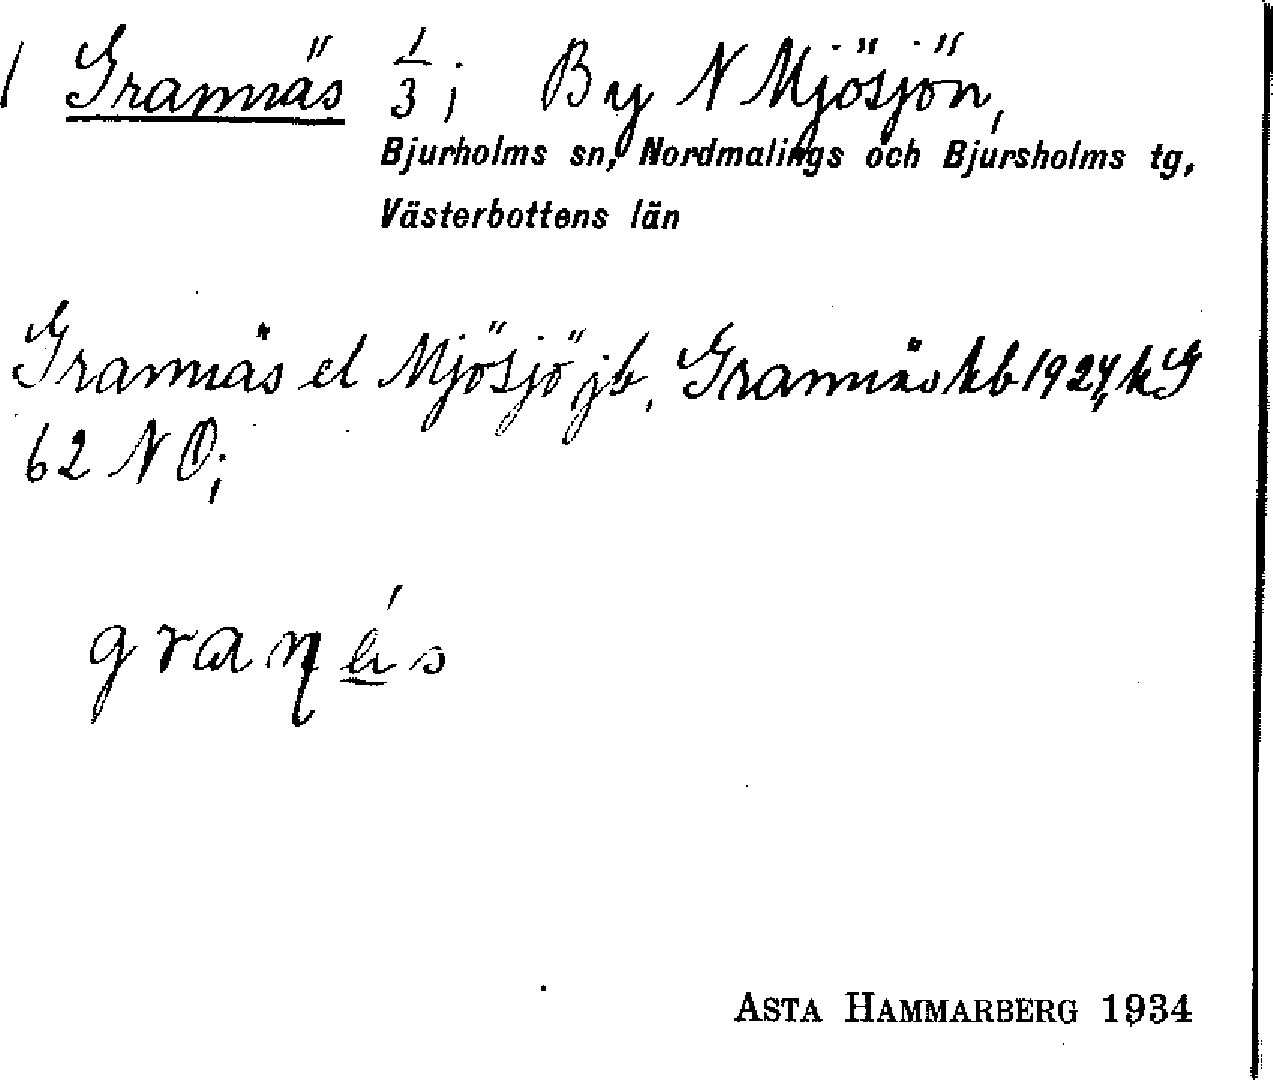 1 Grannäs 1/3; By N Mjösjön,
Bjurholms sn, Nordmalings och Bjursholms tg,
Västerbottens län
Grannäs el Mjösjö jb, Grannäs kb 1924, kG
62 NO;
ASTA HAMMARBERG 1934